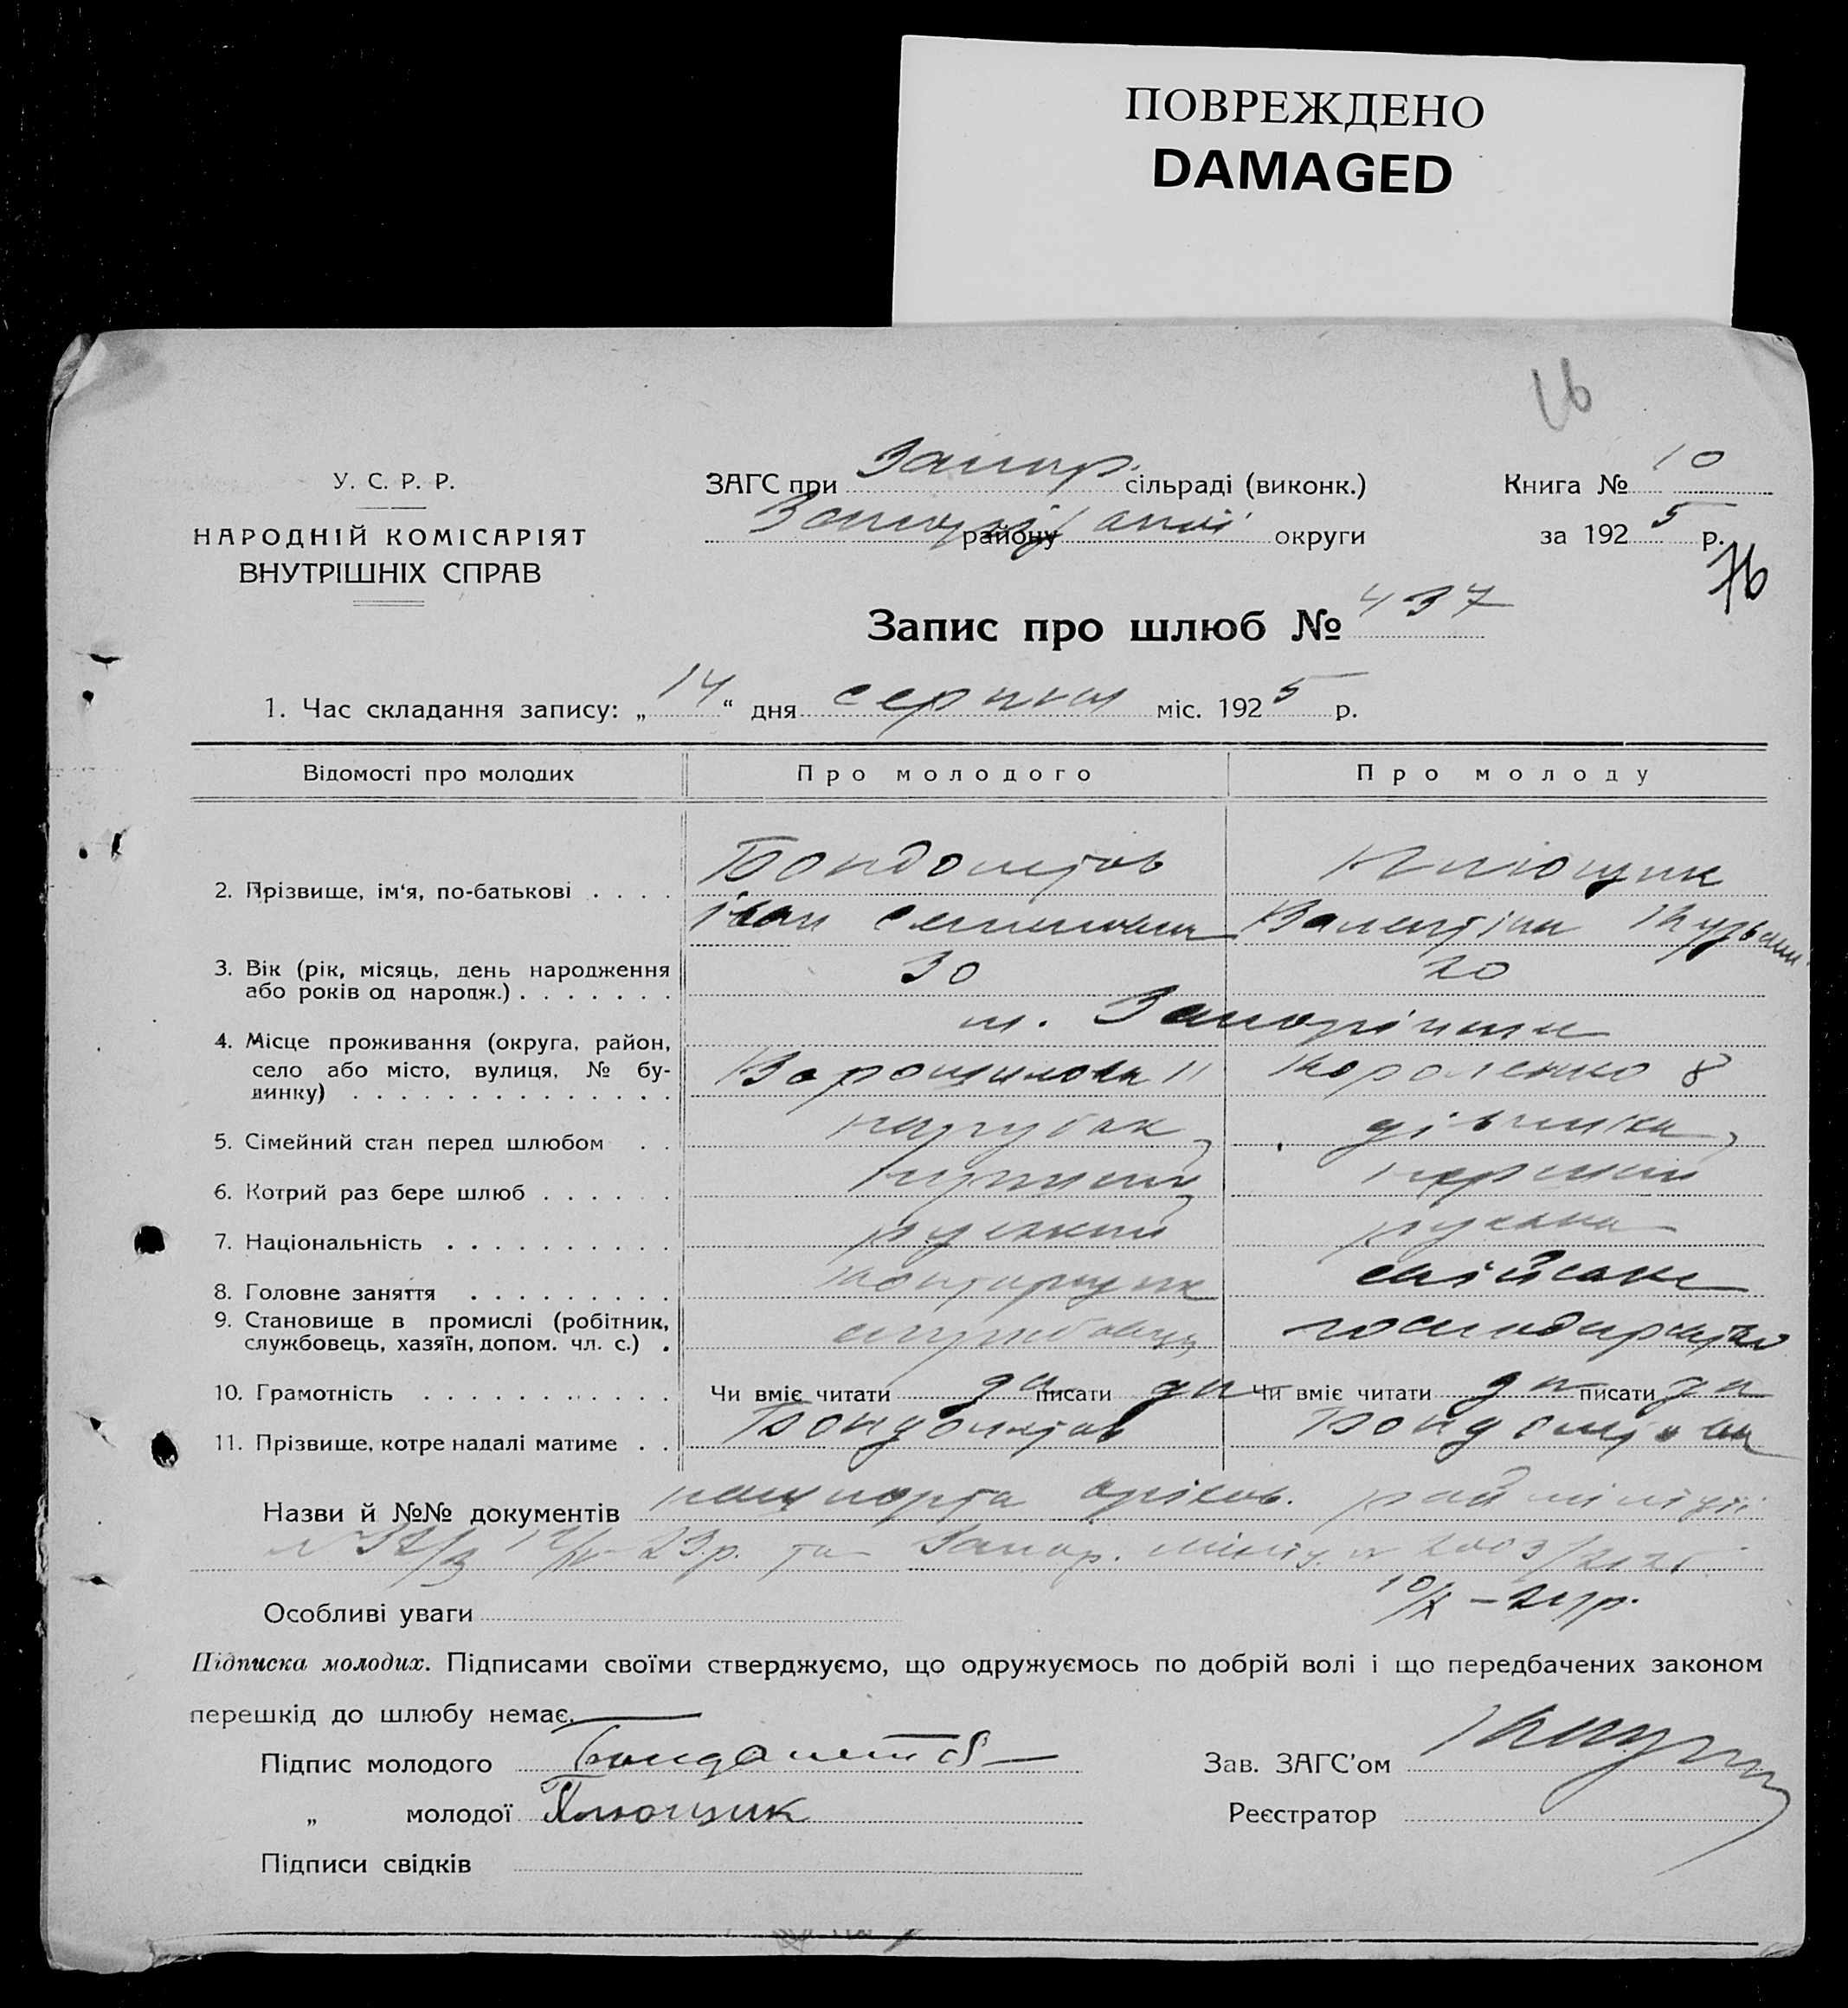 ПОВРЕЖДЕНО
DAMAGED
16
У. С. Р. Р.
НАРОДНІЙ КОМІСАРІЯТ
ВНУТРІШНІХ СПРАВ
ЗАГС при Запор. сільраді (виконк.)
району округи
Книга № 10
за 1925 р.
76
Запис про шлюб № 437
1. Час складання запису: „14“ дня серпня міс. 1925 р.
Відомості про молодих Про молодого Про молоду
2. Прізвище, ім‘я, по-батькові . . . . Бондометов Плющик
Іван Валентіна
3. Вік (рік, місяць, день народження або років од народж.) . . . . . . . 30 20
4. Місце проживання (округа, район, село або місто, вулиця, № будинку) . . . . . . . . . . . . . . м. Запоріжжя
Ворошилова 11 Короленко 8
5. Сімейний стан перед шлюбом . . парубак, дівчина,
6. Котрий раз бере шлюб . . . . . . перший перший
7. Національність . . . . . . . . . . руський руська
8. Головне заняття . . . . . . . . . конторщик
9. Становище в промислі (робітник, службовець, хазяїн, допом. чл. с.) . службовець господарство
10. Грамотність . . . . . . . . . . . Чи вміє читати да писати да Чи вміє читати да писати да
11. Прізвище, котре надалі матиме . . Бондометов Бондометова
Назви й №№ документів пашпорта оріхов. рай міліції
23 р. та Запор. міліц. № 2003/
10/X – 24 р.
Особливі уваги
Підписка молодих. Підписами своїми стверджуємо, що одружуємось по добрій волі і що передбачених законом
перешкід до шлюбу немає.
Підпис молодого Бондаметов
„ молодої Плющик
Підписи свідків
Зав. ЗАГС'ом
Реєстратор